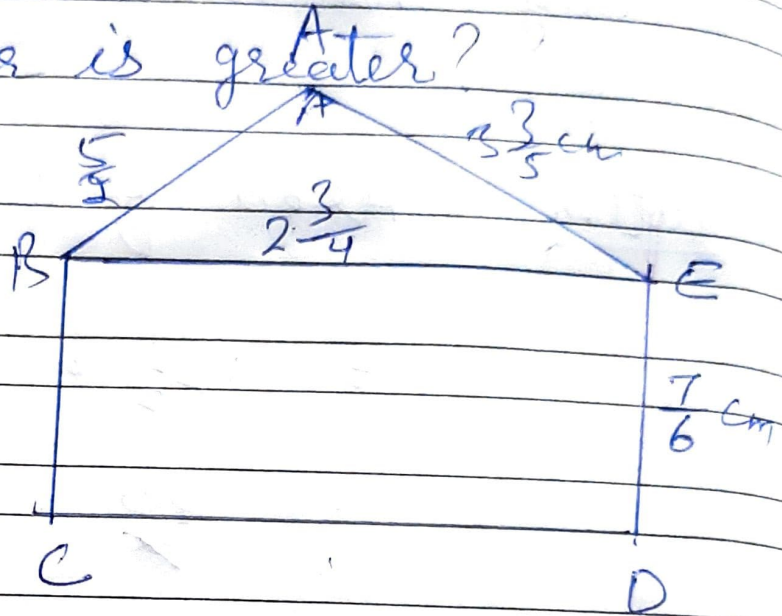 is greater?
A
A
5/2
3 3/5 cm
2 3/4
B
E
7/6 cm
C
D